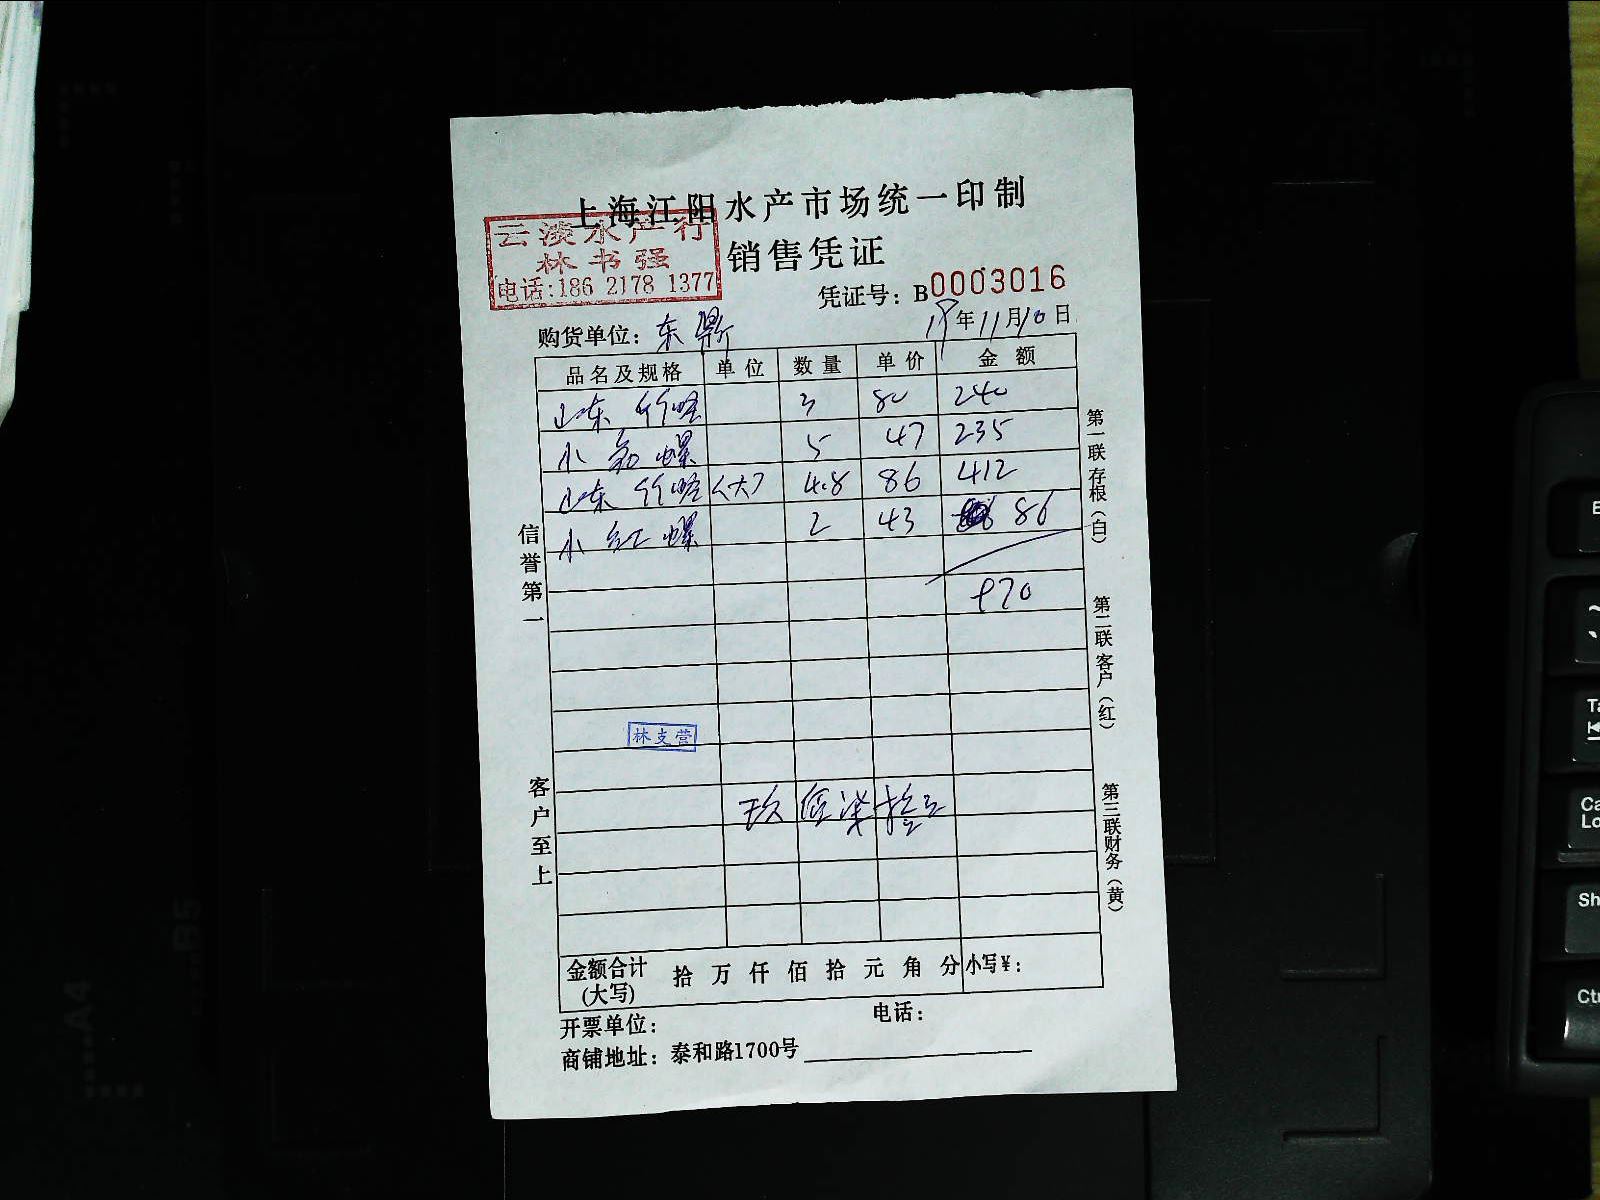 上海江阳水产市场统一印制
云淡水产行
林书强
电话:186 2178 1377
销售凭证
凭证号: B0003016
购货单位: 东
19年11月10日
品名及规格 单位 数量 单价 金额
山东 竹蛏 3 80 240
小 螺 5 47 235
山东 竹蛏 (大) 4.8 86 412
小 红 螺 2 43 86
970
林支营
玖佰柒拾元
金额合计(大写) 拾 万 仟 佰 拾 元 角 分 小写¥:
开票单位: 电话:
商铺地址: 泰和路1700号
信誉第一
客户至上
第一联存根(白)
第二联客户(红)
第三联财务(黄)
A4
B5